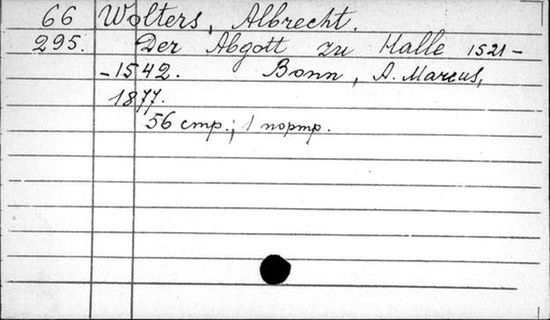 66 Wolters, Albrecht.
295. Der Abgott zu Halle 1521-
-1542. Bonn, A. Marcus,
1877.
56 стр.; 1 портр.